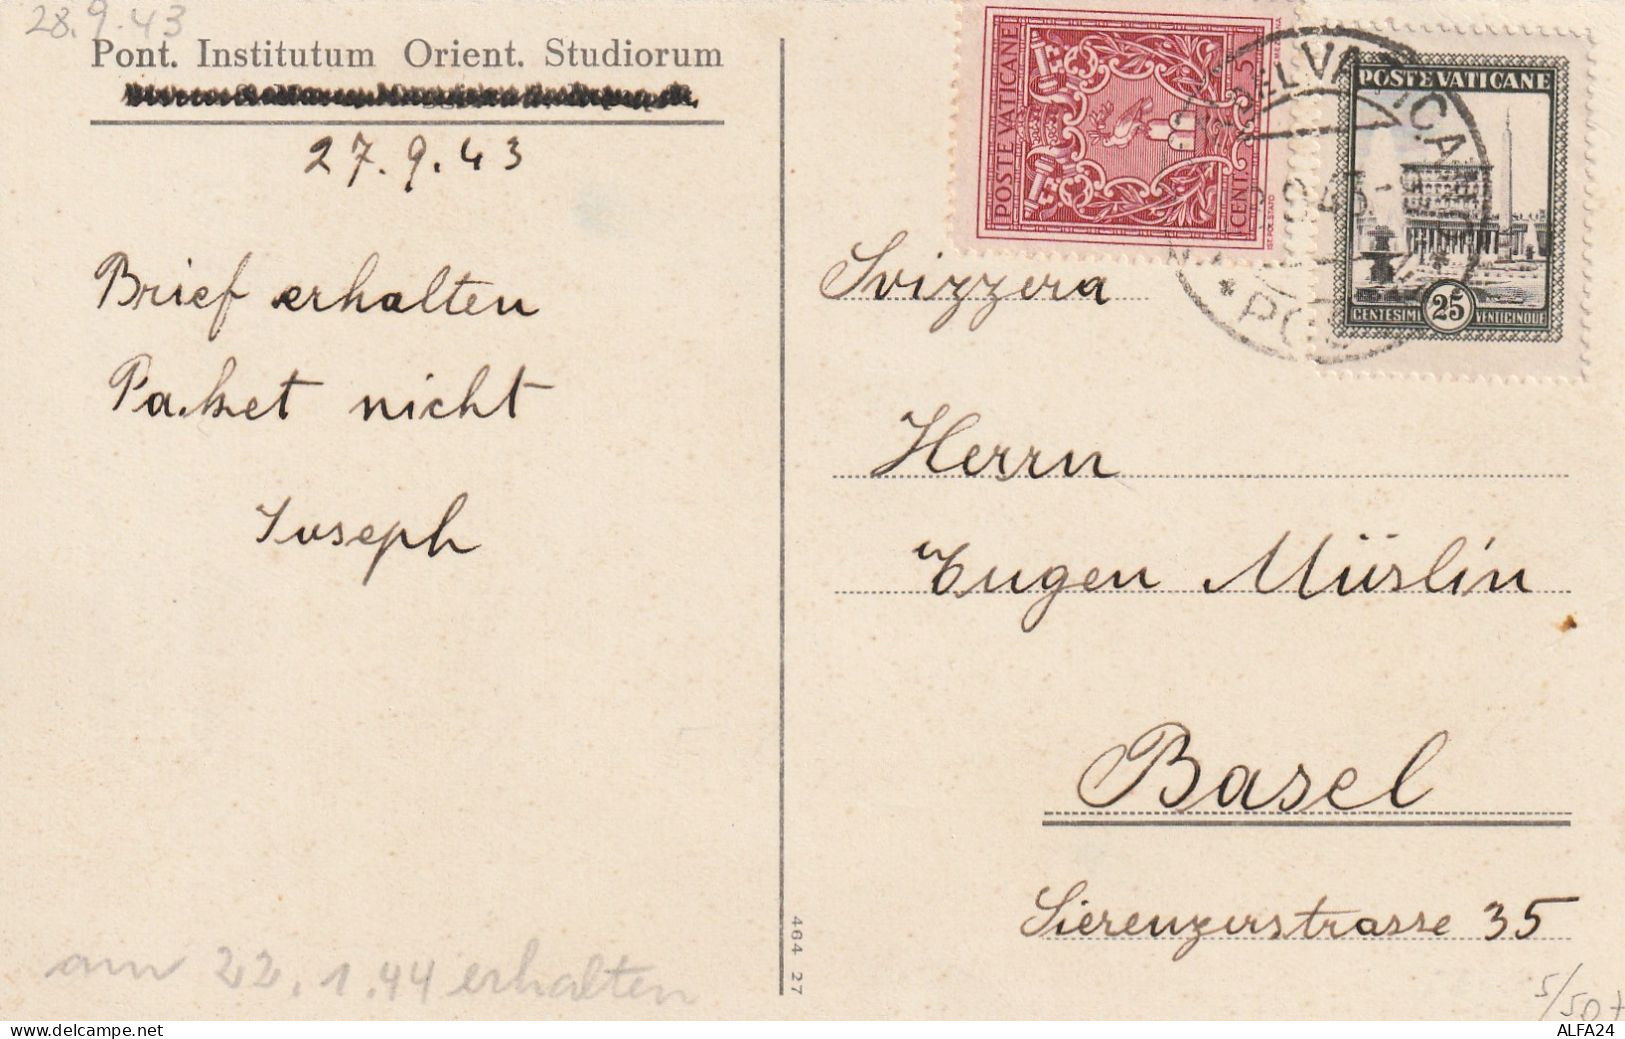 28.9.43
Pont. Institutum Orient. Studiorum
27.9.43
Brief erhalten
Paket nicht
Joseph
am 22.1.44 erhalten
464 27
POSTE VATICANE
CENT. 5
POSTE VATICANE
CENTESIMI 25 VENTICINQUE
Svizzera
Herrn
Eugen Müslin
Basel
Sierenzerstrasse 35
5/50
ALFA24
delcampe.net